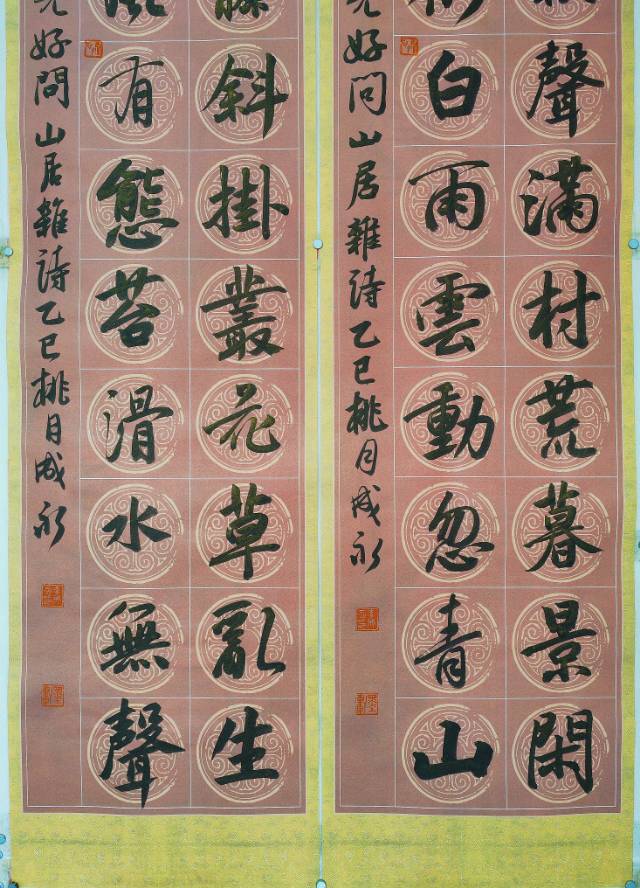 聲滿村荒暮景閑
白雨雲動忽青山
好問山居雜詩乙巳桃月成永
斜掛叢花草亂生
有態苔滑水無聲
好問山居雜詩乙巳桃月成永